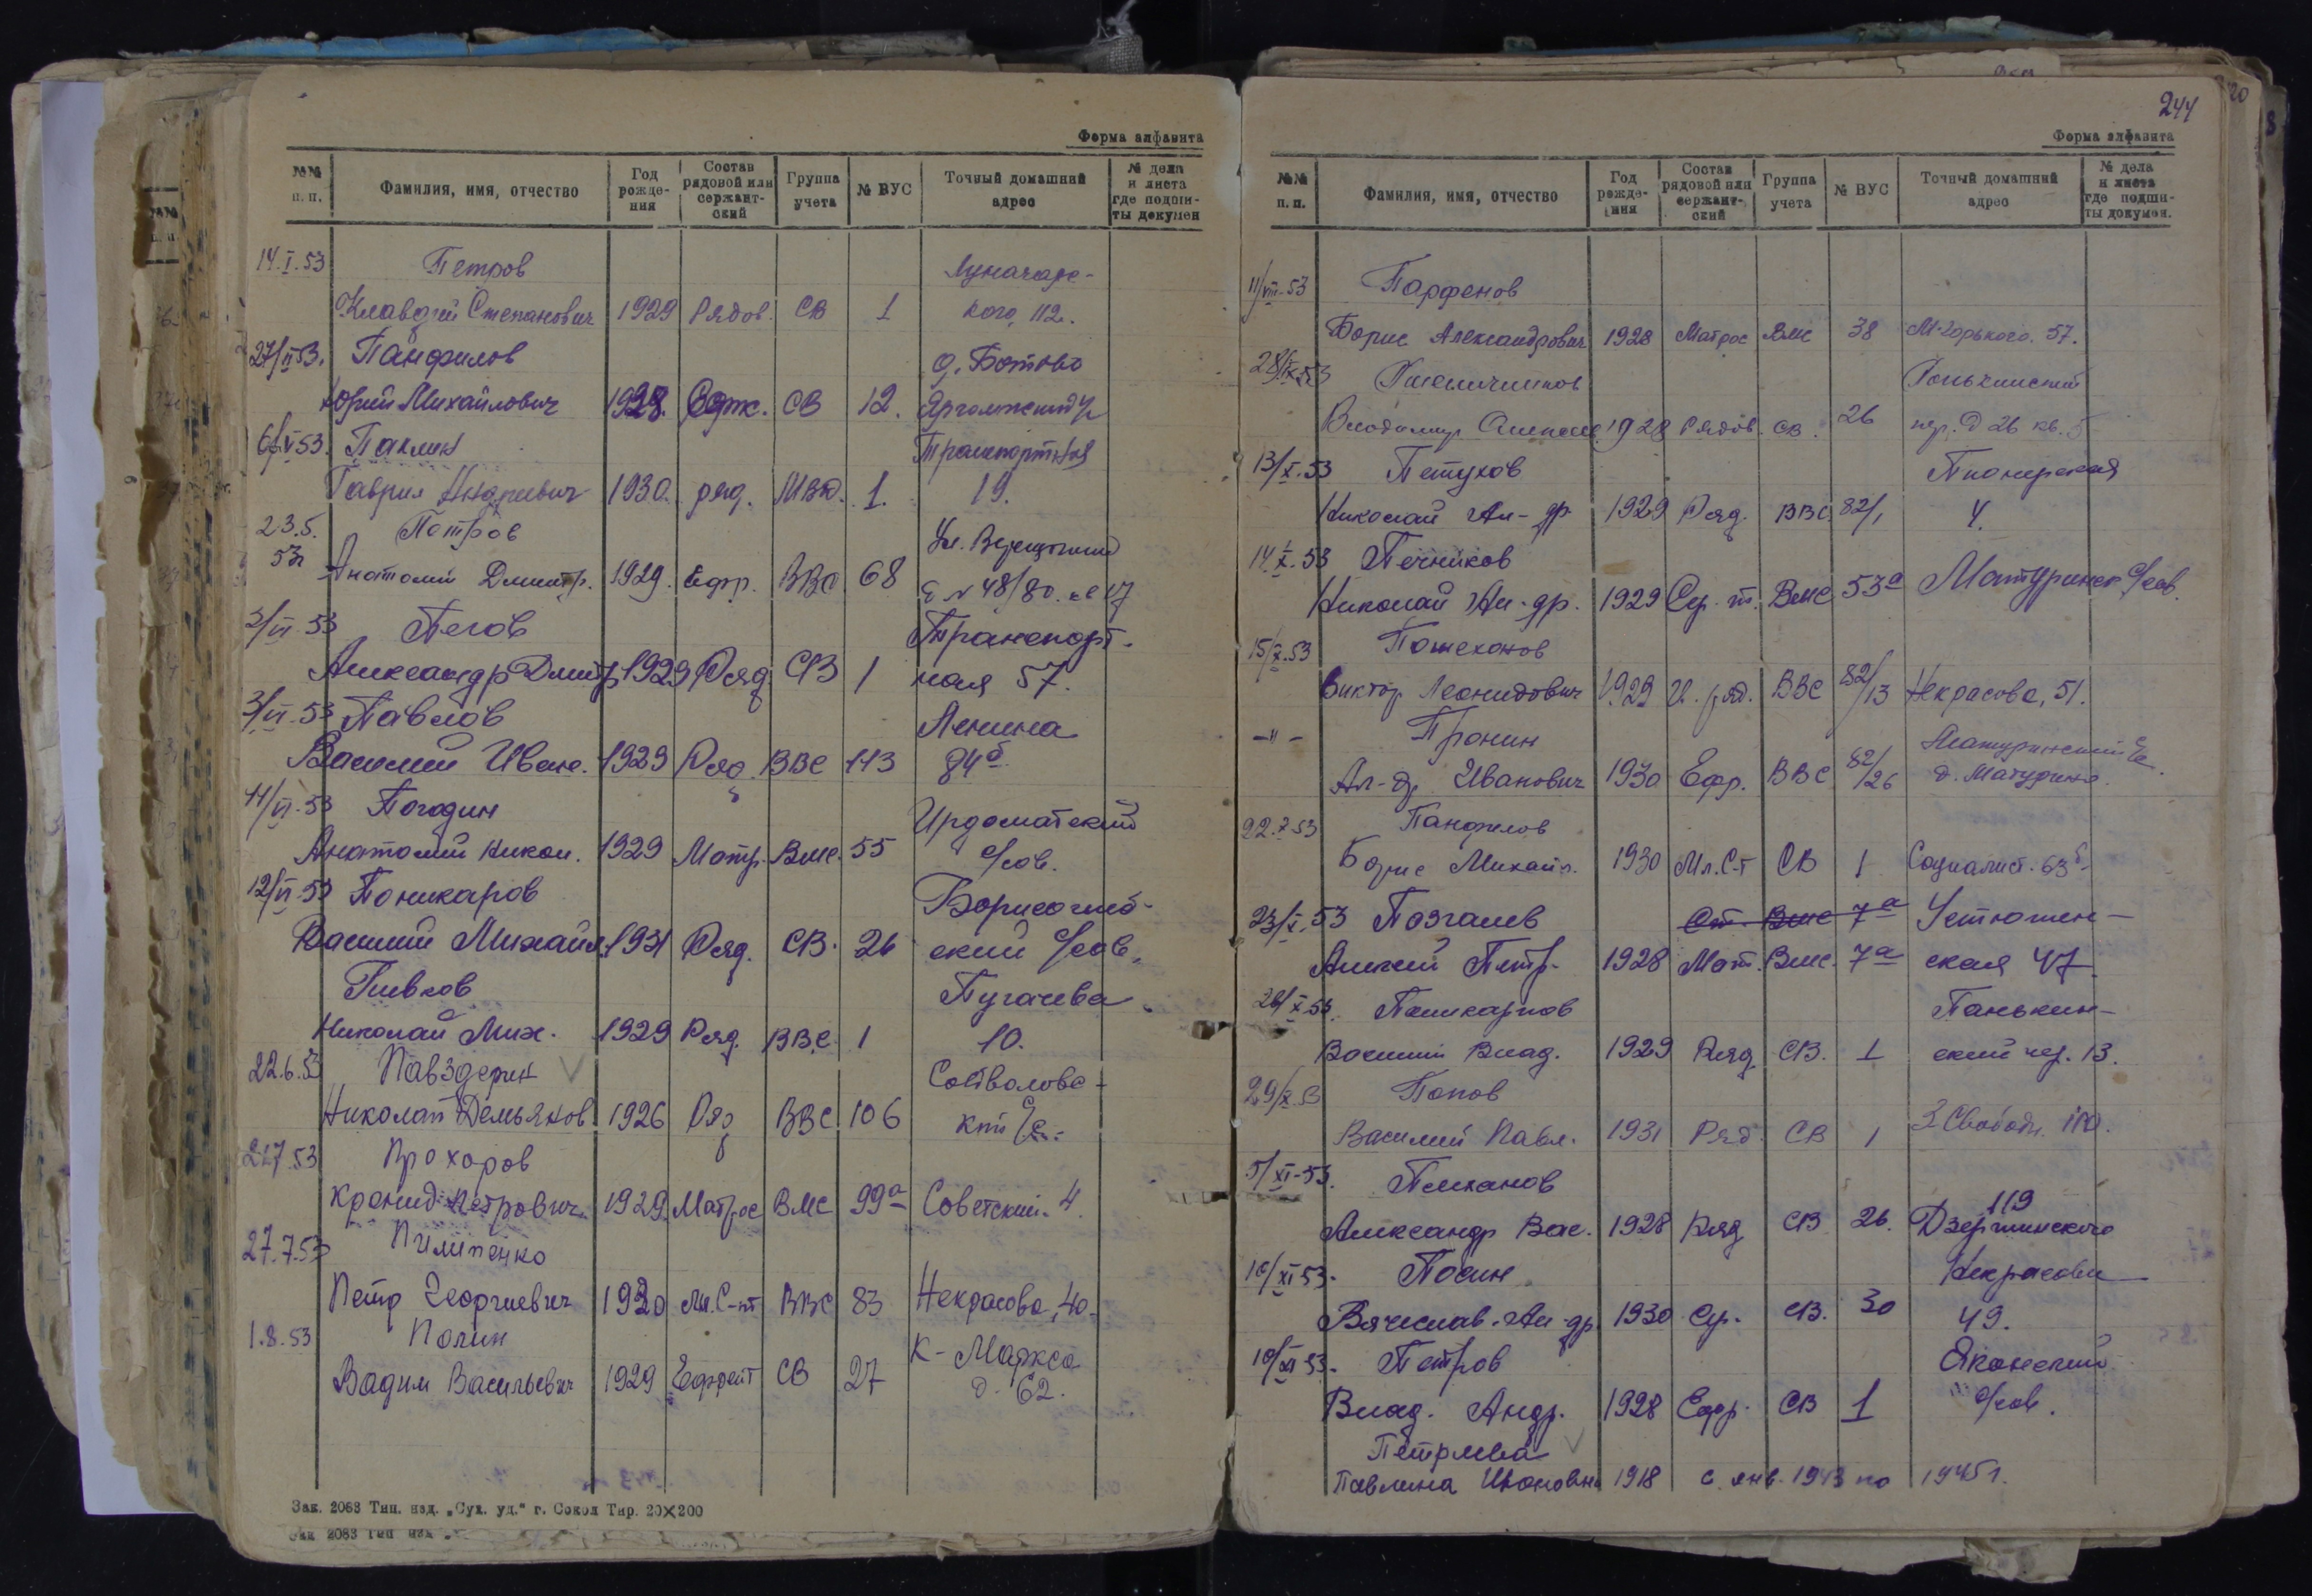 Форма алфавита
№№ п. п.
Фамилия, имя, отчество
Год рожде-ния
Состав рядовой или сержант-ский
Группа учета
№ ВУС
Точный домашний адрес
№ дела и листа где подши-ты докумен
14.I.53 Петров Луначарс-
Клавдий Степанович 1929 Рядов. СВ 1 кого, 112.
Панфилов д. Ботово
Юрий Михайлович 1928. Серж. СВ 12.
6/V 53. Паклин Транспортная
Гаврил Андреевич 1930. ряд. МВД. 1. 19.
23.5. Петров
53г Анатолий Дмитр. 1929. Ефр. ВВС 68 48/80. кв 17
3/VI-53 Пегов Транспорт-
Александр Дмитр 1929 Ряд СВ 1 ная 57.
3/VI-53 Павлов Ленина
Василий Иван. 1929 Ряд. ВВС 113 84б
11/VI-53 Погодин Ирдоматский
Анатолий Никол. 1929 Матр. Вмс. 55 с/сов.
12/VI-53 Поникаров Борисоглеб-
Василий Михайл. 1931 Ряд. СВ. 26 ский с/сов.
Пивков Пугачева
Николай Мих. 1929 Ряд. ВВС 1 10.
22.6.53 Павздерин
Николай Демьянов. 1926 Ряд ВВС 106
Прохоров
Кронид Петрович 1929. Матрос ВМС 99а Советский. 4.
27.7.53 Пилипенко
Петр Георгиевич 1930 Мл. С-нт ВВС 83 Некрасова, 40.
1.8.53 Полин К-Маркса
Вадим Васильевич 1929 Ефрейт СВ 27 д. 62.
Зак. 2063 Тип. изд. „Сух. уд.“ г. Сокол Тир. 20×200
244
Форма алфавита
№№ п.п.
Фамилия, имя, отчество
Год рожде-ния
Состав рядовой или сержант-ский
Группа учета
№ ВУС
Точный домашний адрес
№ дела и листа где подши-ты докумен.
11/VIII-53 Парфенов
Борис Александрович 1928 Матрос ВМС 38 М-Горького. 57.
Пшеничников
Владимир 1928 Рядов. СВ. 26 пер. д 26 кв. 5
13/X.53 Петухов Пионерская
Николай Ал-др. 1929 Ряд. ВВС 82/1 4.
14.X.53 Печников
Николай Ал-др. 1929 Вмс 53а Матуринск. с/сов.
15/X.53 Пошехонов
Виктор Леонидович 1929 ВВС 82/13 Некрасова, 51.
-"- Пронин Матуринский с/с.
Ал-др Иванович 1930 Ефр. ВВС 82/26 д. Матурино.
22.X 53 Панфилов
Борис Михайл. 1930 Мл. С-т СВ 1 Социалист. 63б
23/X.53 Позгалев Ст. Вмс 7а Устюжен-
Алексей Петр. 1928 Мат. Вмс. 7а ская 47
Поникарпов Панькин-
Василий Влад. 1929 Ряд СВ. 1 ский пер. 13.
29/X.53 Попов
Василий Павл. 1931 Ряд. СВ 1 З Свободу 110.
5/XI-53. Плеханов 119
Александр Вас. 1928 Ряд СВ 26. Дзержинского
10/XI 53. Посин Некрасова
Вячеслав. Ал-др. 1930 Ср. СВ. 30 49.
10/XI 53. Петров Яконский
Влад. Андр. 1928 Ефр. СВ 1 с/сов.
Павлина Ивановна 1918 с янв. 1943 по 1945 г.